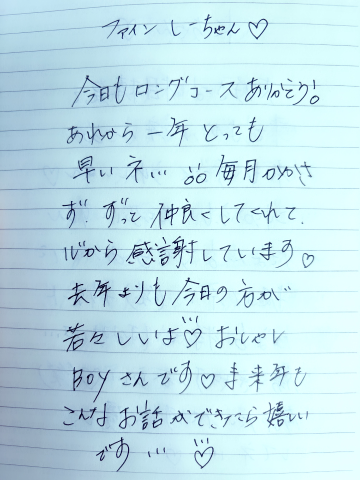 ファイン しーちゃん♡
今日も ロングコース ありがとう!
あれから 一年 とっても
早いネ... 毎月かかさ
ず、ずっと 仲良くしてくれて、
心から 感謝しています♡
去年よりも 今日の方が
若々しいよ♡ おしゃレ
BOYさんです♡ ま来年も
こんな お話ができたら嬉しい
です...♡